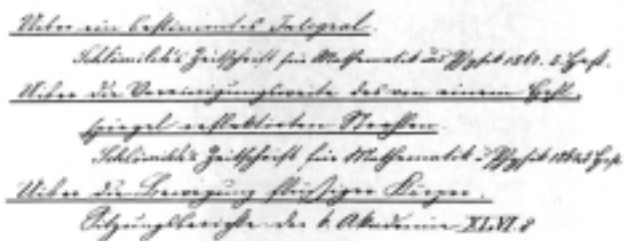 Ueber ein bestimmtes Integral.
Schlömilch's Zeitschrift für Mathematik u. Physik 2. Heft.
Ueber die Vereinigungsweite des von einem Hohl-
spiegel reflektirten Strahlen.
Schlömilch's Zeitschrift für Mathematik u. Physik Heft
Ueber die Bewegung flüssiger Körper.
Sitzungsberichte der k. Akademie XLVI. 8